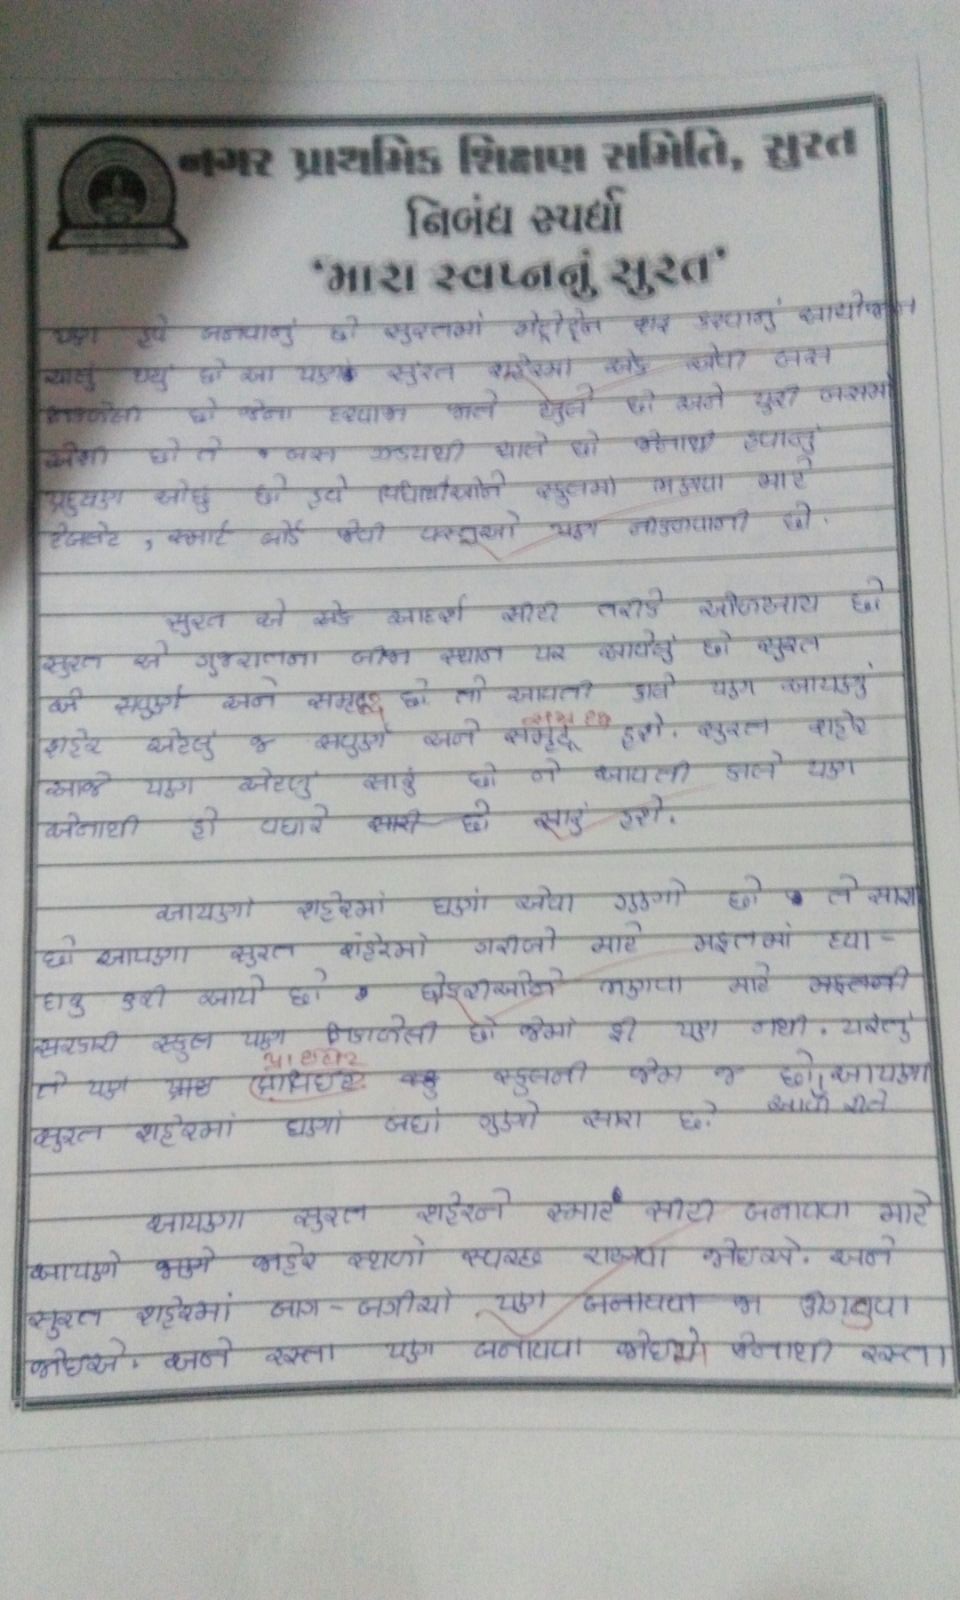 નગર પ્રાથમિક શિક્ષણ સમિતિ, સુરત
નિબંધ સ્પર્ધા
'મારા સ્વપ્નનું સુરત'
પણ હવે બનવાનું છે સુરતમાં મેટ્રોટ્રેન શરૂ કરવાનું આયોજન
ચાલું થયું છે આ પણ સુરત શહેરમાં એક એવી બસ
છે જેના દરવાજા જાતે ખુલે છે અને પુરી બસમાં
છે તે બસ ઝડપથી ચાલે છે જેનાથી હવાનું
પ્રદુષણ ઓછુ છે હવે વિદ્યાર્થીઓને સ્કુલમાં ભણવા માટે
ટેબલેટ, સ્માર્ટ બોર્ડ જેવી વસ્તુઓ પણ નીકળવાની છે.
સુરત એ એક આદર્શ સીટી તરીકે ઓળખાય છે
સુરત એ ગુજરાતના બીજા સ્થાન પર આવેલું છે સુરત
એ સપુર્ણ અને સમૃદ્ધ છે તો આવતી કાલે પણ આપણું
શહેર એટલું જ સપુર્ણ અને સમૃદ્ધ હશે. સુરત શહેર
આજે પણ એટલું સારું છે ને આવતી કાલે પણ
એનાથી હી વધારે સારી છે સારું હશે.
આપણા શહેરમાં ઘણાં એવા ગુણો છે તે સારા
છે આપણા સુરત શહેરમાં ગરીબો માટે મફતમાં દવા-
દારૂ કરી આપે છે છોકરીઓને ભણવા માટે મફતની
સરકારી સ્કુલ પણ નિકાળેલી છે જેમાં ફી પણ નથી. પરંતું
પ્રાઇવેટ
તે પણ પ્રાઇવેટ સ્કુલની જેમ જ છે, આપણા
સુરત શહેરમાં ઘણાં બધાં ગુણો સારા છે. આવી રીતે
આપણા સુરત શહેરને સ્માર્ટ સીટી બનાવવા માટે
આપણે જાહેર સ્થળો સ્વચ્છ રાખવા જોઇએ. અને
સુરત શહેરમાં બાગ-બગીચો પણ બનાવવા જ ઉગાવવા
જોઇએ. અને રસ્તા પણ બનાવવા જોઇએ જેનાથી રસ્તા